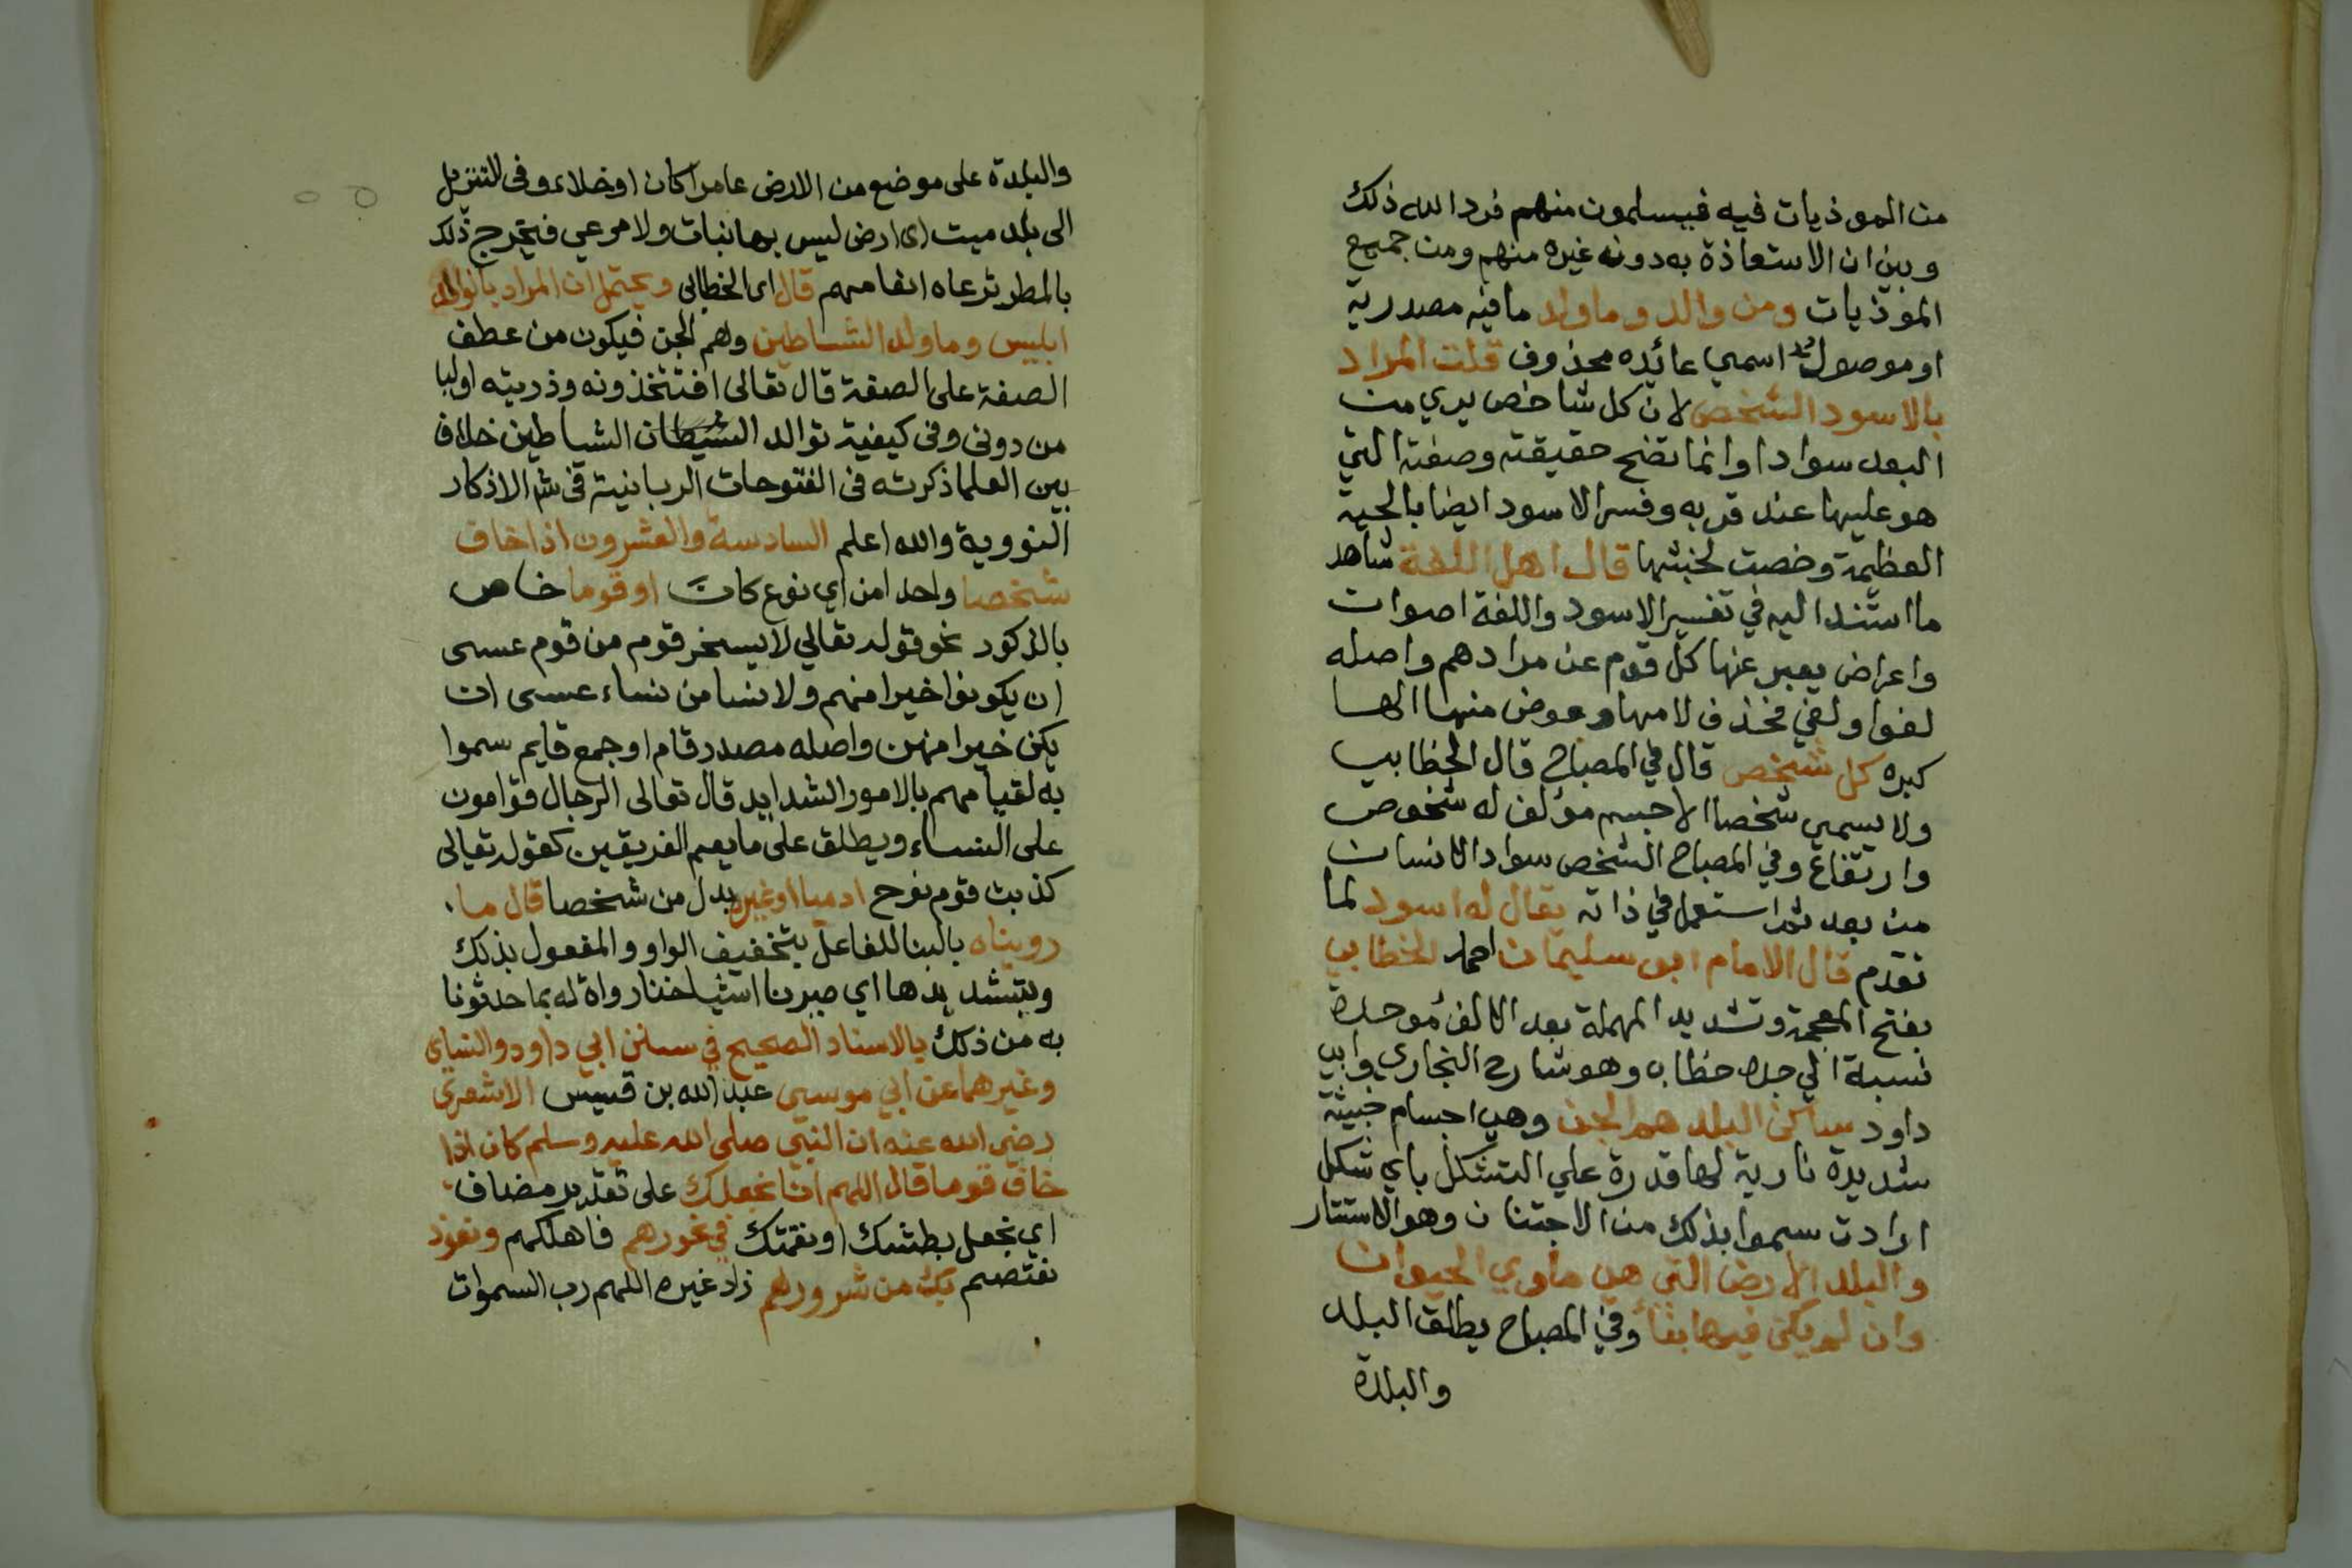 من الموذيات فيه فيسلمون منهم فرد الله ذلك
وبين ان الاستعاذة به دونه غيره منهم ومن جميع
الموذيات ومن والد وما ولد ما فيه مصدرية
او موصول اسمي عائده محذوف قلت المراد
بالاسود الشخص لان كل شاخص يري من
البعد سوادا وانما تضح حقيقته وصفته التي
هو عليها عند قربه وفسر الاسود ايضا بالحية
العظيمة وخصت لخبثها قال اهل اللغة شاهد
ما استند اليه في تفسير الاسود واللغة اصوات
واعراض يعبر عنها كل قوم عن مرادهم واصله
لغوا ولغي فحذف لامها وعوض منها الها
كبره كل شخص قال في المصباح قال الخطابي
ولا يسمي شخصا الا جسم مؤلف له شخوص
وارتفاع وفي المصباح الشخص سواد الانسان
من بعد ثم استعمل في ذاته يقال له اسود لما
تقدم قال الامام ابو سليمان احمد الخطابي
بفتح المعجمة وتشديد المهملة بعد الالف موحدة
نسبة الي جده خطاب وهو شارح البخاري وابي
داود ساكن البلد هم الجن وهي اجسام خبيثة
شديدة نارية لها قدرة علي التشكل باي شكل
ارادت سموا بذلك من الاجتنان وهو الاستتار
والبلد الارض التي هي ماوي الحيوان
وان لم يكن فيها بنأ وفي المصباح يطلق البلد
والبلدة
والبلدة على موضع من الارض عامرا كان او خلاء وفي التنزيل
الى بلد ميت اى ارض ليس بها نبات ولا مرعي فيخرج ذلك
بالمطر ترعاه انعامهم قال اى الخطابى ويحتمل ان المراد بالوالد
ابليس وما ولد الشياطين وهم الجن فيكون من عطف
الصفة على الصفة قال تعالى افتتخذونه وذريته اوليا
من دونى وفى كيفية توالد الشيطان الشياطين خلاف
بين العلما ذكرته فى الفتوحات الربانية فى شر الاذكار
النووية والله اعلم السادسة والعشرون اذا خاف
شخصا واحدا من اي نوع كان او قوما خاص
بالذكور نحو قوله تعالي لا يسخر قوم من قوم عسى
ان يكونوا خيرا منهم ولا نسا من نساء عسى ان
يكن خيرا منهن واصله مصدر قام او جمع قايم سموا
به لقيامهم بالامور الشدايد قال تعالى الرجال قوامون
على النساء ويطلق على ما يعم الفريقين كقوله تعالى
كذبت قوم نوح ادميا او غيره بدل من شخصا قال ما
رويناه بالبنا للفاعل بتخفيف الواو والمفعول بذلك
وبتشديدها اي صيرنا اشياخنا رواة له بما حدثونا
به من ذلك بالاسناد الصحيح في سنن ابي داود والنساي
وغيرهما عن ابي موسي عبد الله بن قيس الاشعري
رضى الله عنه ان النبي صلى الله عليه وسلم كان اذا
خاف قوما قال اللهم انا نجعلك على تقدير مضاف
اي نجعل بطشك او نقمتك في نحورهم فاهلكهم ونعوذ
نعتصم بك من شرورهم زاد غيره اللهم رب السموات